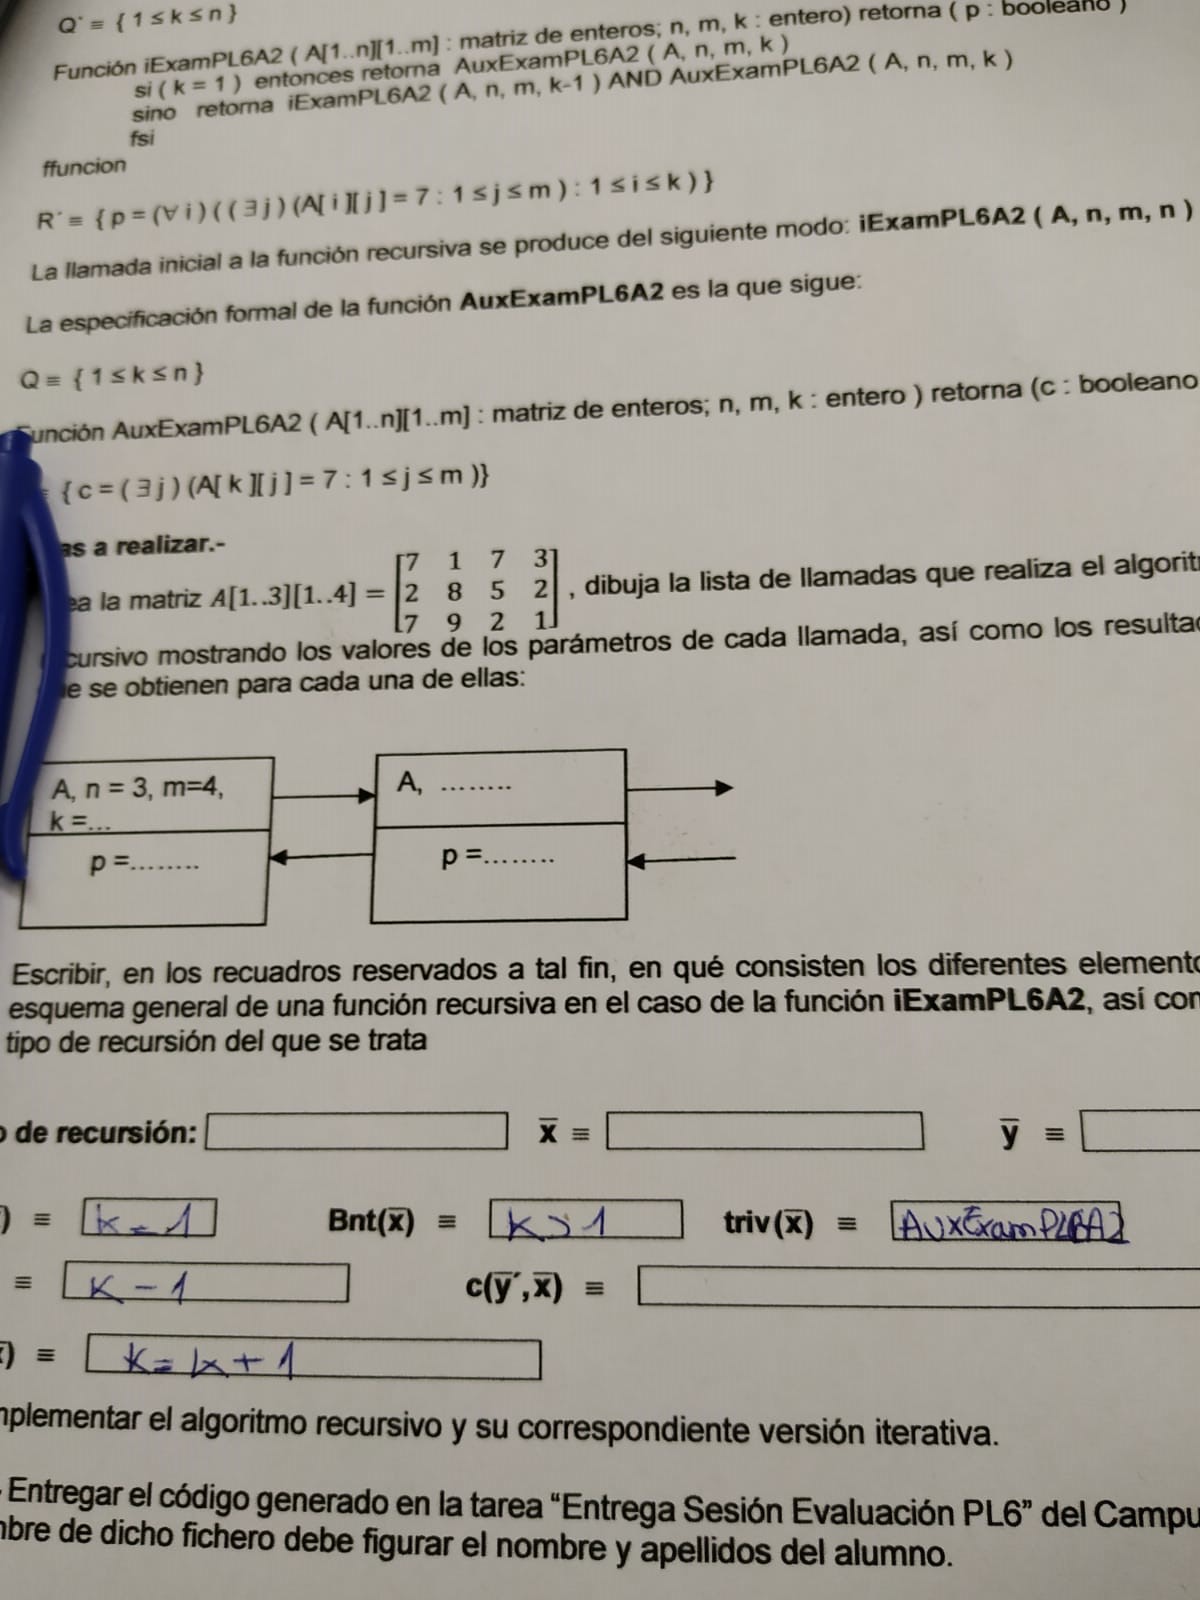 Q´ ≡ { 1 ≤ k ≤ n }
Función iExamPL6A2 ( A[1..n][1..m] : matriz de enteros; n, m, k : entero) retorna ( p : booleano )
si ( k = 1 ) entonces retorna AuxExamPL6A2 ( A, n, m, k )
sino retorna iExamPL6A2 ( A, n, m, k-1 ) AND AuxExamPL6A2 ( A, n, m, k )
fsi
ffuncion
R´ ≡ { p = (∀ i ) ( ( ∃ j ) (A[ i ][ j ] = 7 : 1 ≤ j ≤ m ) : 1 ≤ i ≤ k ) }
La llamada inicial a la función recursiva se produce del siguiente modo: iExamPL6A2 ( A, n, m, n )
La especificación formal de la función AuxExamPL6A2 es la que sigue:
Q ≡ { 1 ≤ k ≤ n }
unción AuxExamPL6A2 ( A[1..n][1..m] : matriz de enteros; n, m, k : entero ) retorna (c : booleano
{ c = ( ∃ j ) (A[ k ][ j ] = 7 : 1 ≤ j ≤ m )}
as a realizar.-
ea la matriz A[1..3][1..4] = [7 1 7 3
2 8 5 2
7 9 2 1] , dibuja la lista de llamadas que realiza el algorit
cursivo mostrando los valores de los parámetros de cada llamada, así como los resulta
e se obtienen para cada una de ellas:
A, n = 3, m=4,
k =...
p =........
A, ........
p =........
Escribir, en los recuadros reservados a tal fin, en qué consisten los diferentes element
esquema general de una función recursiva en el caso de la función iExamPL6A2, así co
tipo de recursión del que se trata
de recursión:
x̅ ≡
y̅ ≡
) ≡ k = 1
Bnt(x̅) ≡ k > 1
triv(x̅) ≡ AuxExamPL6A2
≡ k - 1
c(y̅´,x̅) ≡
) ≡ k = k + 1
mplementar el algoritmo recursivo y su correspondiente versión iterativa.
Entregar el código generado en la tarea “Entrega Sesión Evaluación PL6” del Campu
bre de dicho fichero debe figurar el nombre y apellidos del alumno.